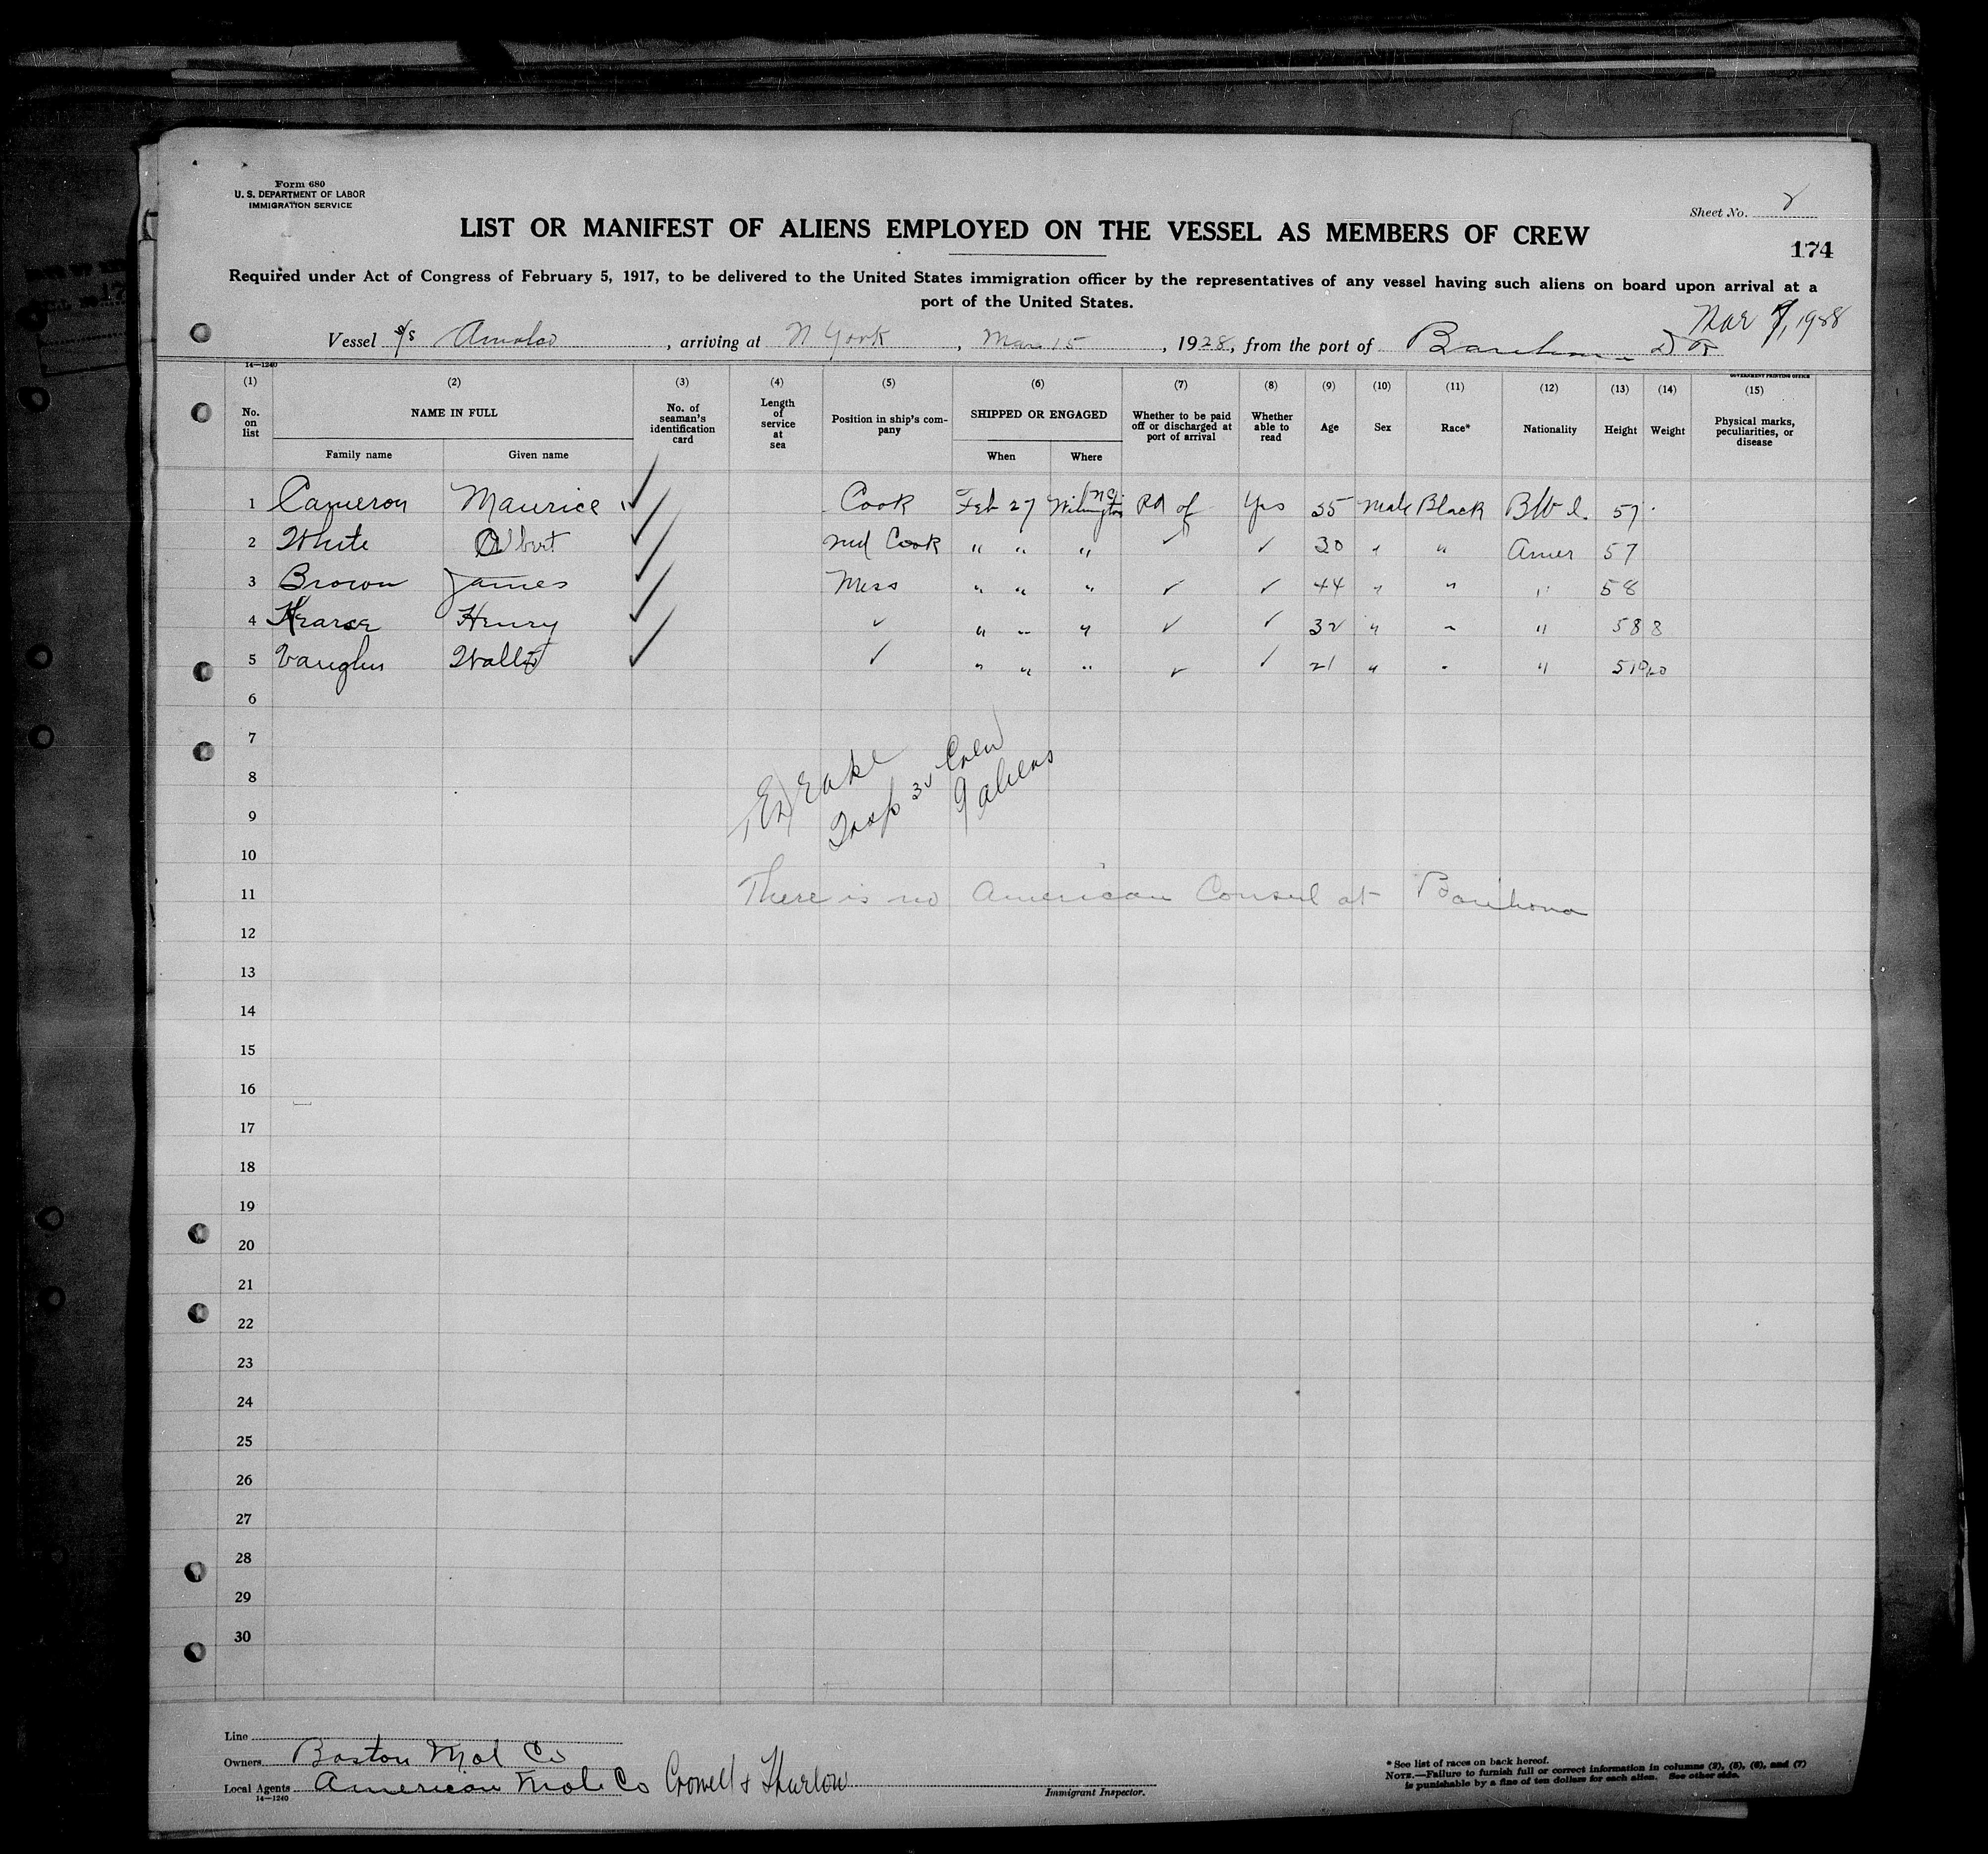 Form 680
U. S. DEPARTMENT OF LABOR
IMMIGRATION SERVICE
Sheet No. 2
LIST OR MANIFEST OF ALIENS EMPLOYED ON THE VESSEL AS MEMBERS OF CREW
174
Required under Act of Congress of February 5, 1917, to be delivered to the United States immigration officer by the representatives of any vessel having such aliens on board upon arrival at a
port of the United States.
Mar 7, 1928
Vessel s/s Amolco, arriving at N York, Mar 15, 1928, from the port of Barahona D R
14—1240
GOVERNMENT PRINTING OFFICE
(1) (2) (3) (4) (5) (6) (7) (8) (9) (10) (11) (12) (13) (14) (15)
No. on list NAME IN FULL No. of seaman's identification card Length of service at sea Position in ship's company SHIPPED OR ENGAGED Whether to be paid off or discharged at port of arrival Whether able to read Age Sex Race* Nationality Height Weight Physical marks, peculiarities, or disease
Family name Given name When Where
1 Cameron Maurice ✓ Cook Feb 27 Wilmington NC Pd of Yes 35 Male Black BWI. 57
2 White Albert ✓ 2nd Cook " " " ✓ ✓ 30 " " Amer 57
3 Brown James ✓ Mess " " " ✓ ✓ 44 " " " 58
4 Henry ✓ ✓ " " " ✓ ✓ 32 " " " 588
5 Vaughn ✓ ✓ " " " ✓ ✓ 21 " " "
6
7
8
9
10
Crew
9 aliens
11 There is no American Consul at Barahona
12
13
14
15
16
17
18
19
20
21
22
23
24
25
26
27
28
29
30
Line
Owners Boston Mol Co
Local Agents American Mol. Co Crowell & Thurlow
14—1240
Immigrant Inspector.
* See list of races on back hereof.
NOTE.—Failure to furnish full or correct information in columns (2), (5), (6), and (7)
is punishable by a fine of ten dollars for each alien. See other side.